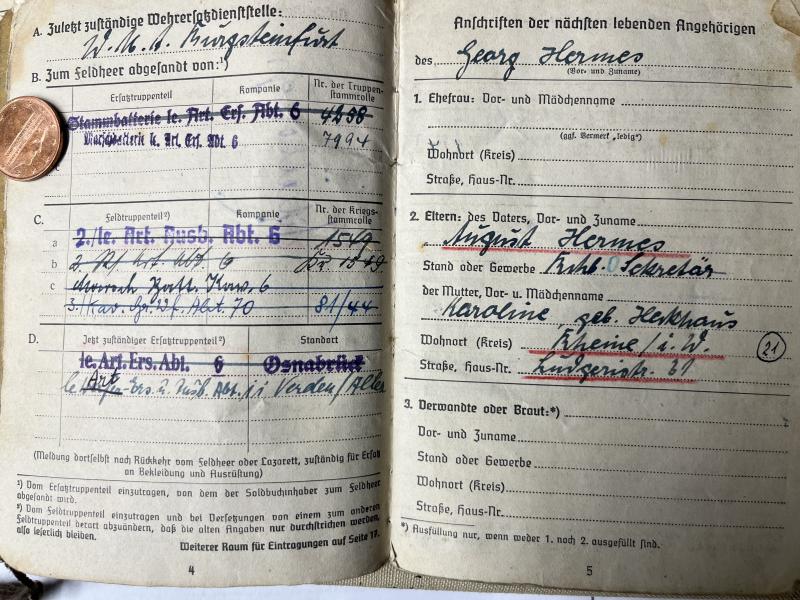 A. Zuletzt zuständige Wehrersatzdienststelle:
W. M. A. Burgsteinfurt
B. Zum Feldheer abgesandt von:¹)
Ersatztruppenteil Kompanie Nr. der Truppenstammrolle
Stammbatterie le. Art. Ers. Abt. 6 4258
Marschbatterie le. Art. Ers. Abt. 6 7994
C. Feldtruppenteil²) Kompanie Nr. der Kriegsstammrolle
a 2./le. Art. Ausb. Abt. 6 1549
b 2. Art. Abt. 6 1549
c Marsch Batt. Kav. 6
3./ Abt. 70 81/44
D. Jetzt zuständiger Ersatztruppenteil Standort
le. Art. Ers. Abt. 6 Osnabrück
le Art Ers. u. Ausb. Abt. Verden/Aller
(Meldung dortselbst nach Rückkehr vom Feldheer oder Lazarett, zuständig für Ersatz
an Bekleidung und Ausrüstung)
¹) Vom Ersatztruppenteil einzutragen, von dem der Soldbuchinhaber zum Feldheer
abgesandt wird.
²) Vom Feldtruppenteil einzutragen und bei Versetzungen von einem zum anderen
Feldtruppenteil derart abzuändern, daß die alten Angaben nur durchstrichen werden,
also leserlich bleiben.
Weiterer Raum für Eintragungen auf Seite 17.
4
Anschriften der nächsten lebenden Angehörigen
des Georg Hermes
(Vor- und Zuname)
1. Ehefrau: Vor- und Mädchenname
(ggf. Vermerk „ledig")
Wohnort (Kreis)
Straße, Haus-Nr.
2. Eltern: des Vaters, Vor- und Zuname
August Hermes
Stand oder Gewerbe Rchb. O Sekretär
der Mutter, Vor- u. Mädchenname
Karoline, geb. Herkhaus
Wohnort (Kreis) Rheine / i. W.
21
Straße, Haus-Nr. Ludgeristr. 61
3. Verwandte oder Braut:*)
Vor- und Zuname
Stand oder Gewerbe
Wohnort (Kreis)
Straße, Haus-Nr.
*) Ausfüllung nur, wenn weder 1. noch 2. ausgefüllt sind.
5